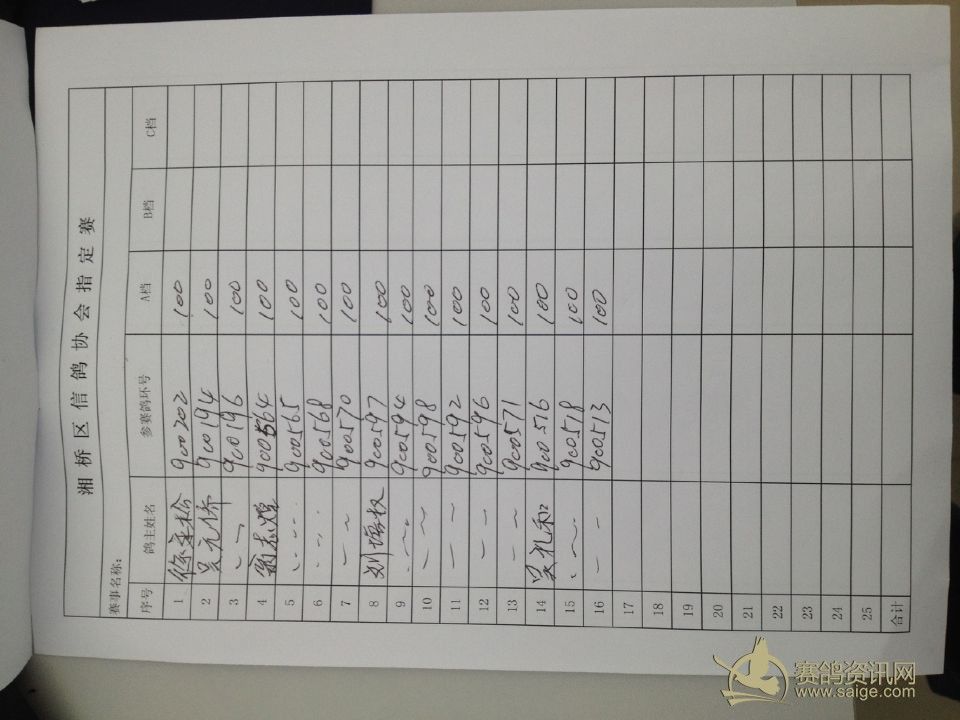 湘桥区信鸽协会指定赛
赛事名称：
序号 鸽主姓名 参赛鸽环号 A档 B档 C档
1 徐 900202 100
2 吴元侨 900194 100
3 〃 900196 100
4 翁志煌 900564 100
5 〃 900565 100
6 〃 900568 100
7 〃 900570 100
8 刘 权 900597 100
9 〃 900594 100
10 〃 900598 100
11 〃 900592 100
12 〃 900596 100
13 〃 900571 100
14 吴礼和 900516 100
15 〃 900518 100
16 〃 900513 100
17
18
19
20
21
22
23
24
25
合计
赛鸽资讯网
www.saige.com